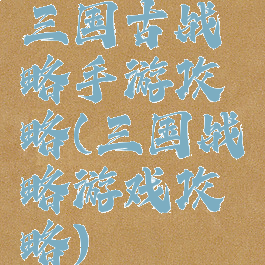 三国古战
略手游攻
略(三国战
略游戏攻
略)